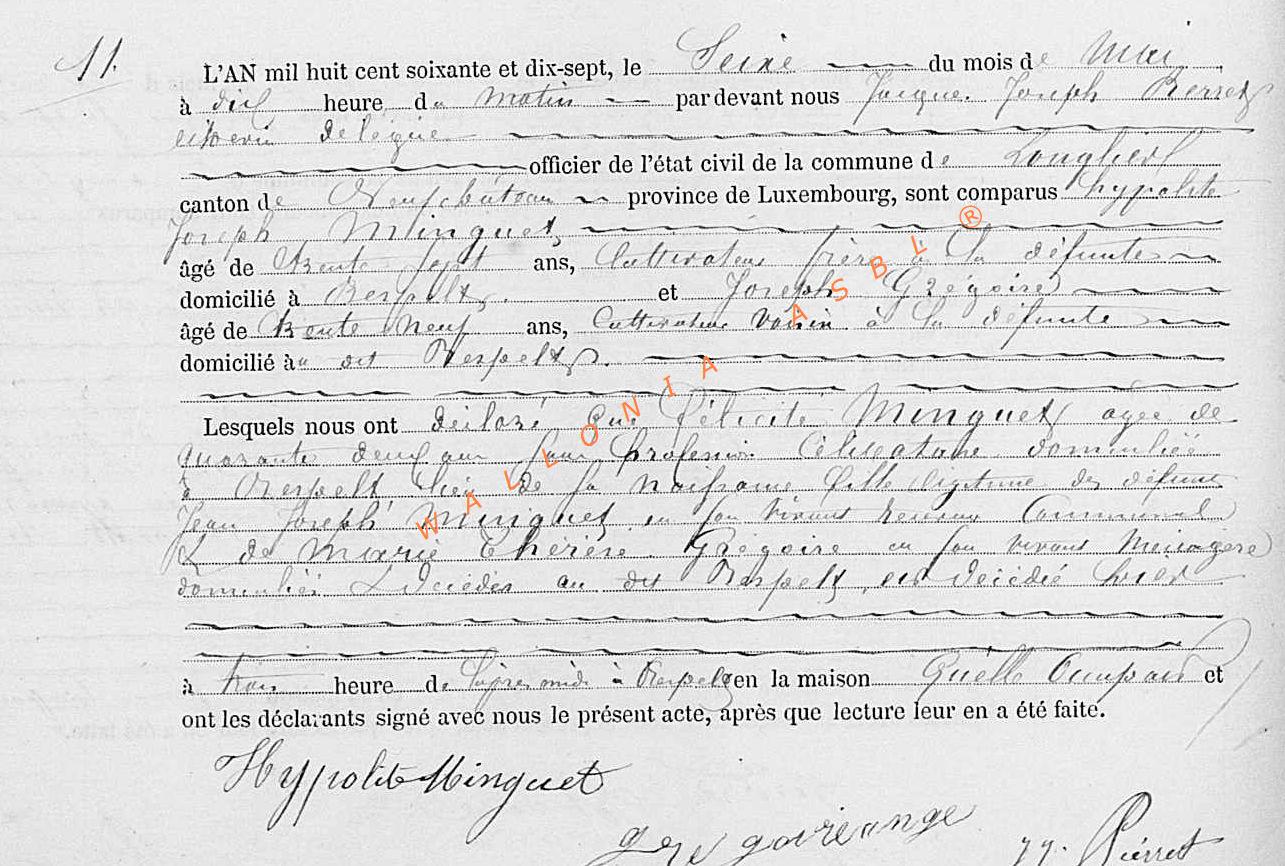 11.
L'AN mil huit cent soixante et dix-sept, le Seize du mois de Mai
à dix heure du matin par devant nous Jacque Joseph Pierret
echevin delégué
officier de l'état civil de la commune de Longlier
canton de Neufchâteau province de Luxembourg, sont comparus hypolite
Joseph Minguet
âgé de trente sept ans, Cultivateur frère à la défunte
domicilié à Respelt et Joseph Grégoire
âgé de trente neuf ans, Cultivateur voisin à la défunte
domicilié au dit Respelt
Lesquels nous ont déclaré que Félicité Minguet agée de
quarante deux ans sans profession Célibataire domiciliée
à Respelt lieu de sa naissance fille légitime des défunts
Jean Joseph Minguet en son vivant receveur Communal
& de Marie thérèse Grégoire en son vivant Ménagère
domiciliés & décédés au dit Respelt, est décédée hier
à trois heure de l'après midi à Respelt en la maison Quelle Occupait et
ont les déclarants signé avec nous le présent acte, après que lecture leur en a été faite.
Hypolite Minguet
JJ. Pierret
WALLONIA ASBL ®